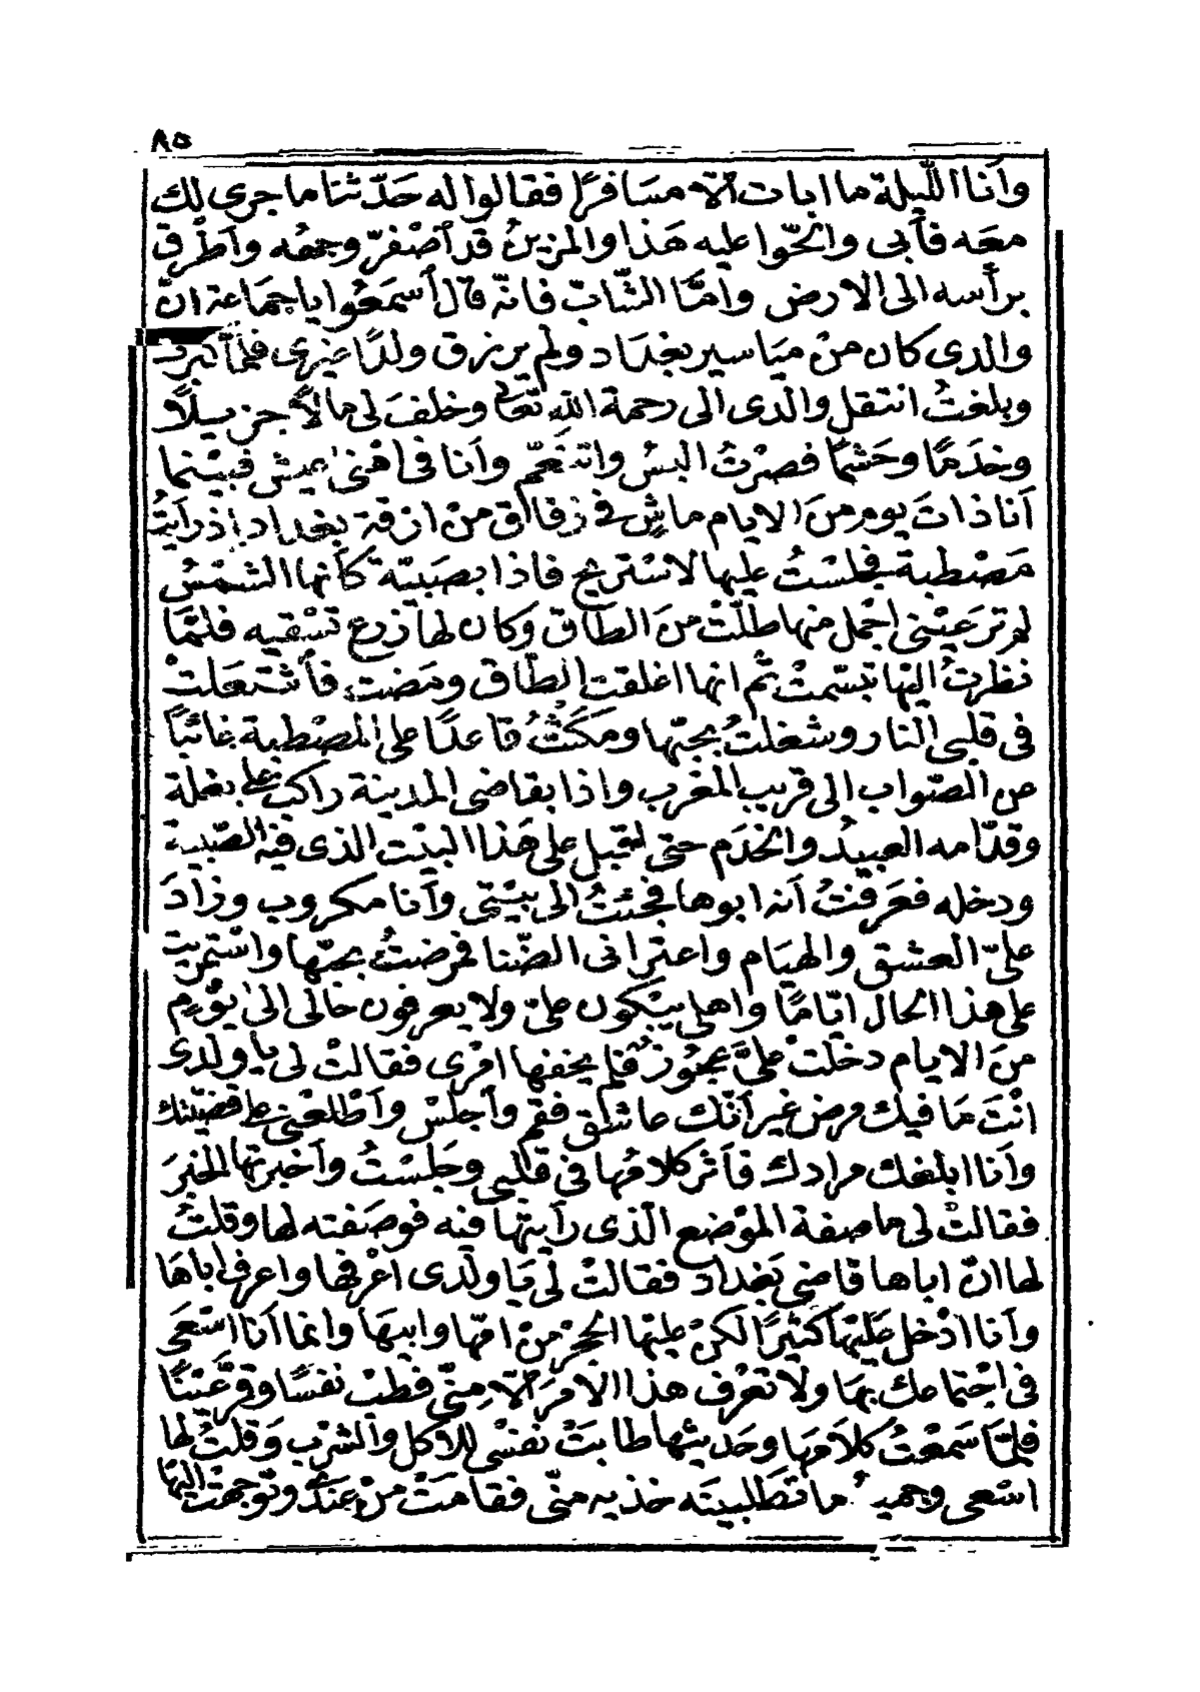 ٨٥
وأنا الليلة ما ابات الّا مسَافرًا فقالوا له حَدّثنا ما جرى لك
معَه فأبى وانحّوا عليه هَذا والمزينُ قد أصْفرّ وجهُه وأطْرق
برأسه الى الارض وامّا الشّابّ فانّه قال أسمَعُوا يا جمَاعة انّ
والدى كان منْ ميَاسير بغدَاد ولم يرزق ولدًا غيرى فلمّا كبرتُ
وبلغتُ انتقل والدى الى رحمة الله تعَالى وخلفَ لى مالاً جزيلاً
وخدَمًا وحَشمًا فصرْتُ البسُ واتنعّم وأنا فى اهنىٰ عيش فبيْنما
أنا ذاتَ يوم منَ الايام ماشٍ فى زقاق منْ ازقة بغداد اذ رأيتُ
مَصْطبة فجلسْتُ عليها لاسْتريح فاذا بصَبيّة كأنها الشمْسُ
لم ترَ عيْنى اجْمل منها طلّتْ منَ الطاق وكان لها زرع تسْقيه فلمّا
نظرتُ اليْها تبسّمتْ ثم انها اغلقت الطّاق ومَضت فأشتعَلتْ
فى قلبى النار وشغلتُ بحبّها ومكثتُ قاعدًا على المصْطبة غائبًا
عن الصّواب الى قريب المغْرب واذا بقاضى المدينة راكب على بغلة
وقدّامه العبيدُ والخدَم حتى اقبل على هَذا البيْت الذى فيه الصّبية
ودخله فعَرفتُ أنه ابوها فجئتُ الى بيْتى وأنا مكروب وزادَ
علىّ العشق والهيَام واعترانى الضّنا فمرضتُ بحبّها واسْتمريت
على هذا الحال ايّامًا واهلى يبْكون علىّ ولا يعرفون حالى الىٰ يوْم
منَ الايام دخلتْ علىَّ عجُوز فلم يخفها امْرى فقالتْ لى يا ولدى
انْتَ مَا فيك مرض غير أنّك عاشق فقم وأجلسْ وأطْلعْنى على قضيّتك
وأنا ابلغك مرادك فأثر كلامُها فى قلبى وجَلسْتُ وأخبرتها الخبرَ
فقالتْ لى ما صفة الموْضع الّذى رأيتهَا فيه فوصَفته لها وقلتُ
لها انّ اباها قاضى بَغدادَ فقالتْ لى يَا ولدى اعْرفها واعرف ابَاهَا
وأنا ادْخل عَليْها كثيرًا لكنْ عليْها الحجْر منْ امّها وابيهَا وانما أنا اسْعَى
فى اجْتماعك بهَا ولا تعْرف هذا الامْرَ الّا مِنّى فطبْ نفسًا وقرَّ عيْنًا
فلمّا سَمعْتُ كلاَمهَا وحَديثها طابَتْ نفسْى للاكل والشرْب وَقلتُ لها
اسْعى وجميع ما تَطلبينه خذيه منّى فقامَتْ منْ عندى وتوجهتْ اليْهَا